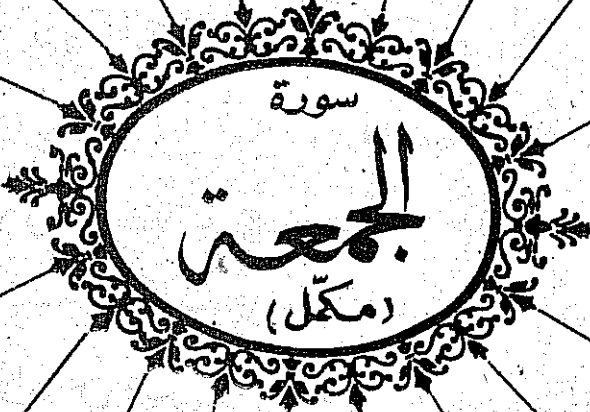 سورة
الجمعة
(مکمّل)